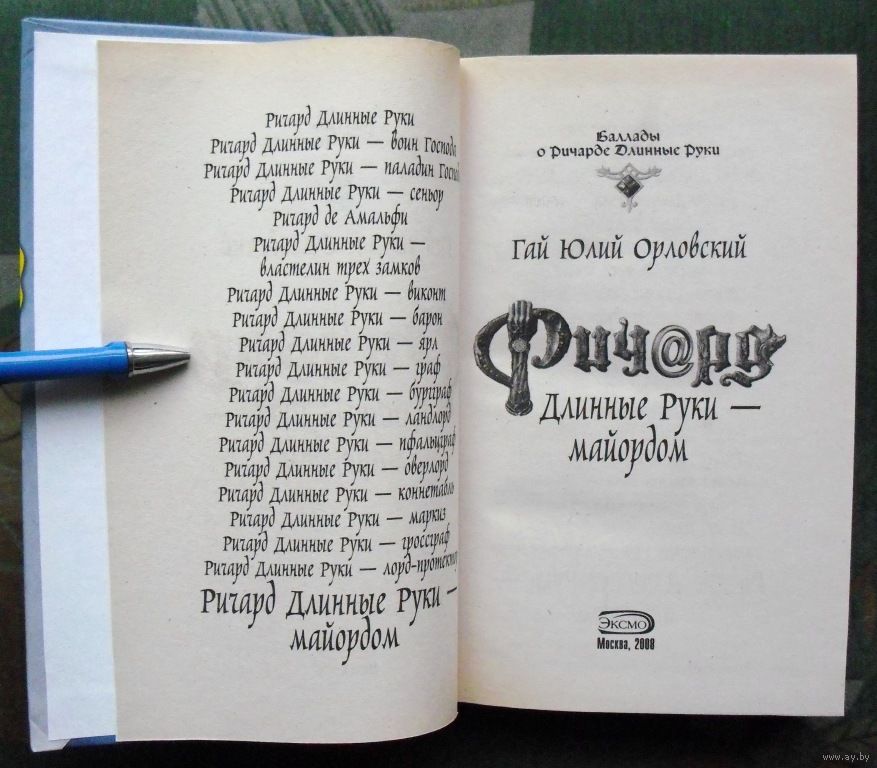 Ричард Длинные Руки
Ричард Длинные Руки — воин Господа
Ричард Длинные Руки — паладин Господ
Ричард Длинные Руки — сеньор
Ричард де Амальфи
Ричард Длинные Руки —
властелин трех замков
Ричард Длинные Руки — виконт
Ричард Длинные Руки — барон
Ричард Длинные Руки — ярл
Ричард Длинные Руки — граф
Ричард Длинные Руки — бургграф
Ричард Длинные Руки — ландлорд
Ричард Длинные Руки — пфальцграф
Ричард Длинные Руки — оверлорд
Ричард Длинные Руки — коннетабль
Ричард Длинные Руки — маркиз
Ричард Длинные Руки — гроссграф
Ричард Длинные Руки — лорд-протектор
Ричард Длинные Руки —
майордом
Баллады
о Ричарде Длинные Руки
Гай Юлий Орловский
Рич@рд
Длинные Руки —
майордом
ЭКСМО
Москва, 2008
www.ay.by